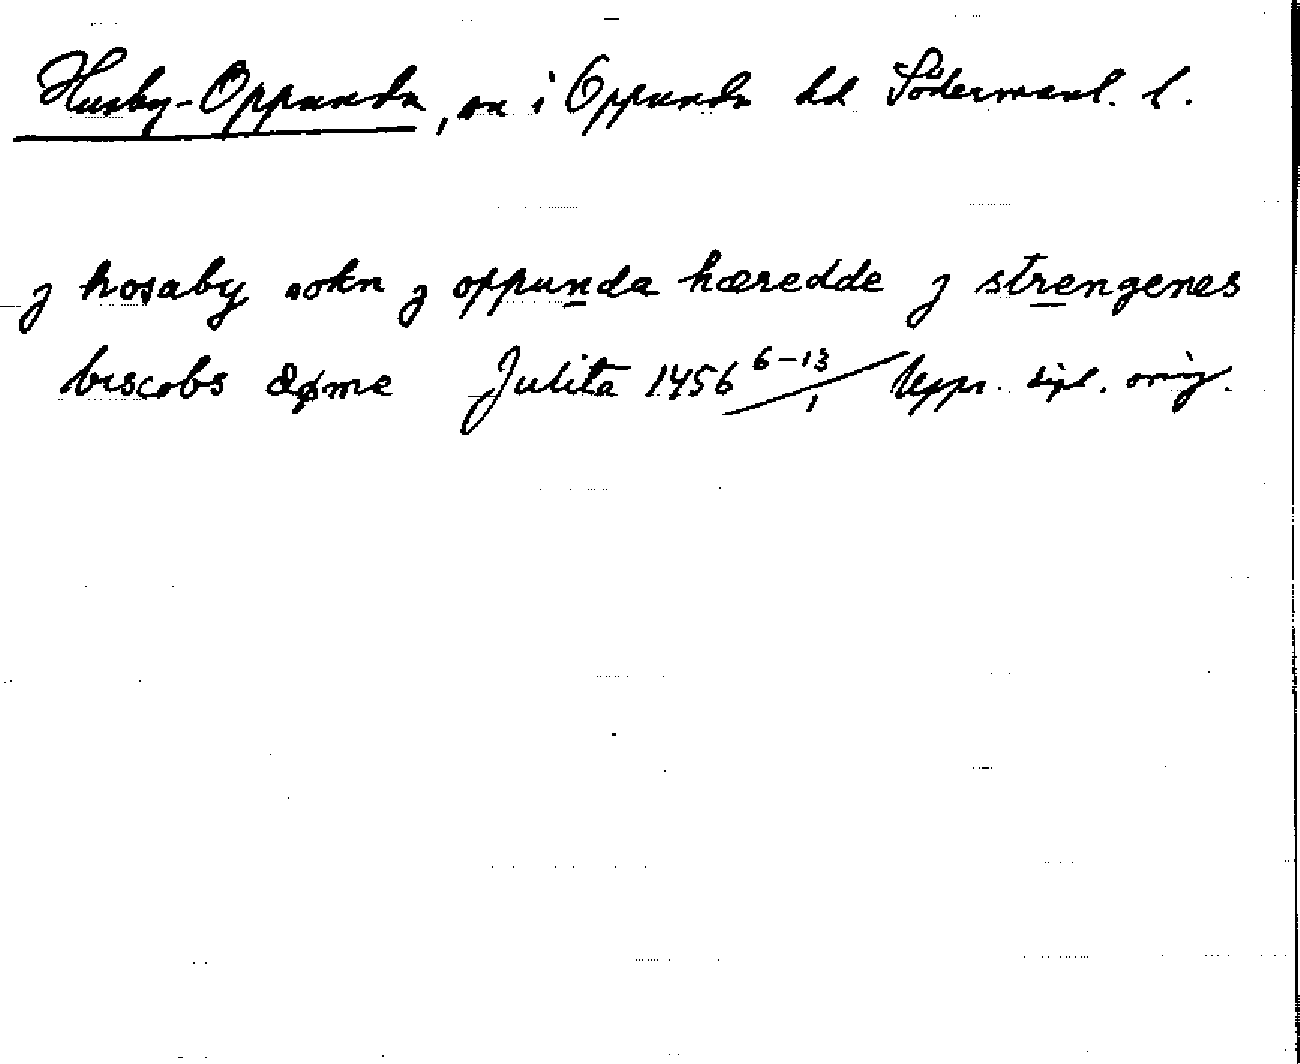 Husby-Oppunda, sn i Oppunda hd Södermanl. l.
j hosaby sokn j oppunda hæredde j strengenes
biscobs døme Julita 1456 6-13/1 Upps. dipl. orig.